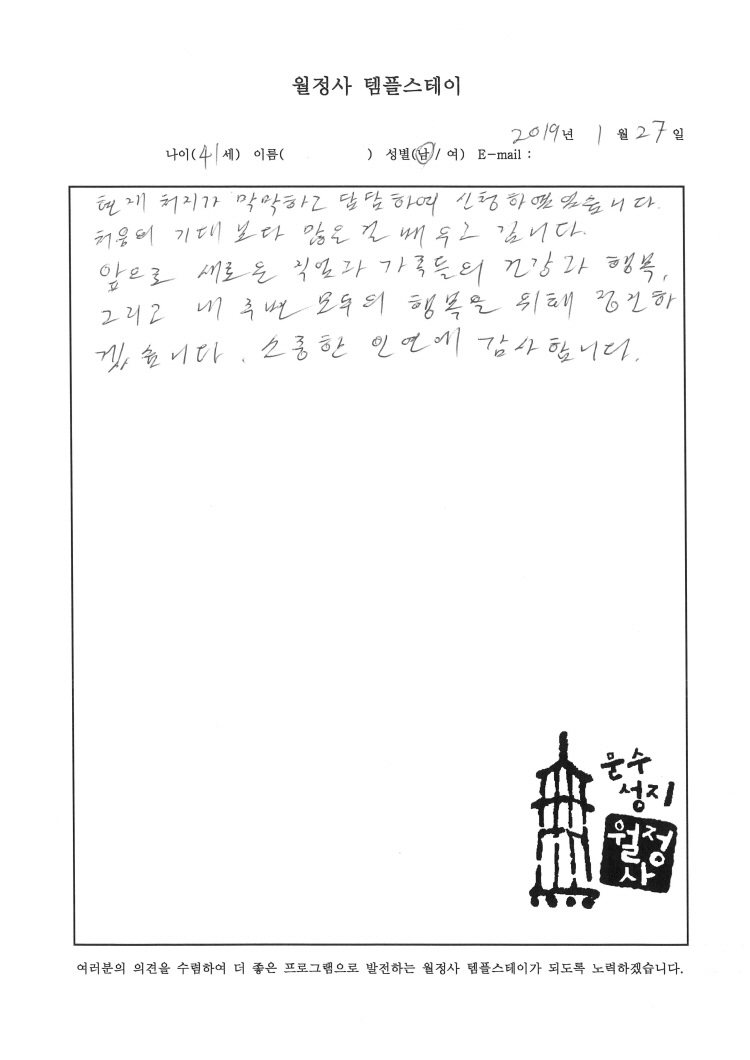 월정사 템플스테이
2019년 1월 27일
나이(41세) 이름( ) 성별(남/여) E-mail :
현재 처지가 막막하고 답답하여 신청하였었습니다.
처음의 기대보다 많은 걸 배우고 갑니다.
앞으로 새로운 직업과 가족들의 건강과 행복,
그리고 내 주변 모두의 행복을 위해 정진하
겠습니다. 소중한 인연에 감사합니다.
문수
성지
월정
사
여러분의 의견을 수렴하여 더 좋은 프로그램으로 발전하는 월정사 템플스테이가 되도록 노력하겠습니다.